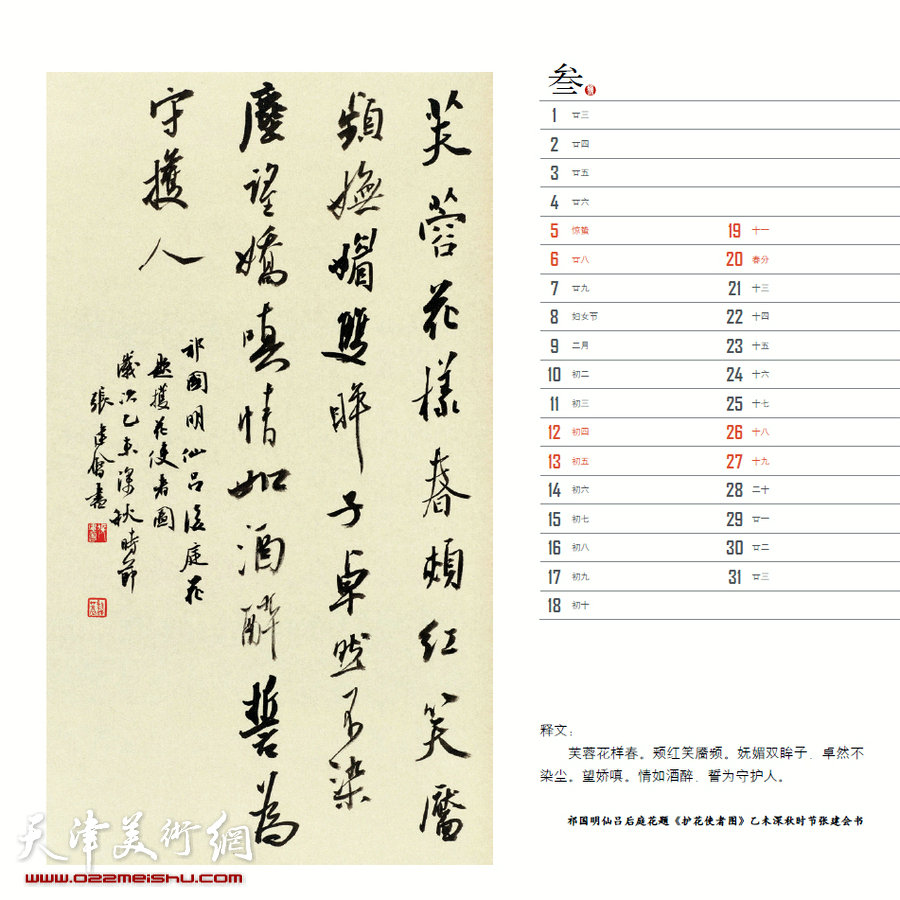 芙蓉花樣春頰紅笑靨
頻嫵媚雙眸子卓然不染
塵望嬌嗔情如酒醉誓為
守護人
祁國明仙呂後庭花
題護花使者圖
歲次乙未深秋時節
張建會書
叁
1 廿三
2 廿四
3 廿五
4 廿六
5 惊蛰
6 廿八
7 廿九
8 妇女节
9 二月
10 初二
11 初三
12 初四
13 初五
14 初六
15 初七
16 初八
17 初九
18 初十
19 十一
20 春分
21 十三
22 十四
23 十五
24 十六
25 十七
26 十八
27 十九
28 二十
29 廿一
30 廿二
31 廿三
释文：
芙蓉花样春。颊红笑靥频。妩媚双眸子．卓然不
染尘。望娇嗔。情如酒醉．誓为守护人。
祁国明仙吕后庭花题《护花使者图》乙未深秋时节张建会书
天津美術網
www.022meishu.com